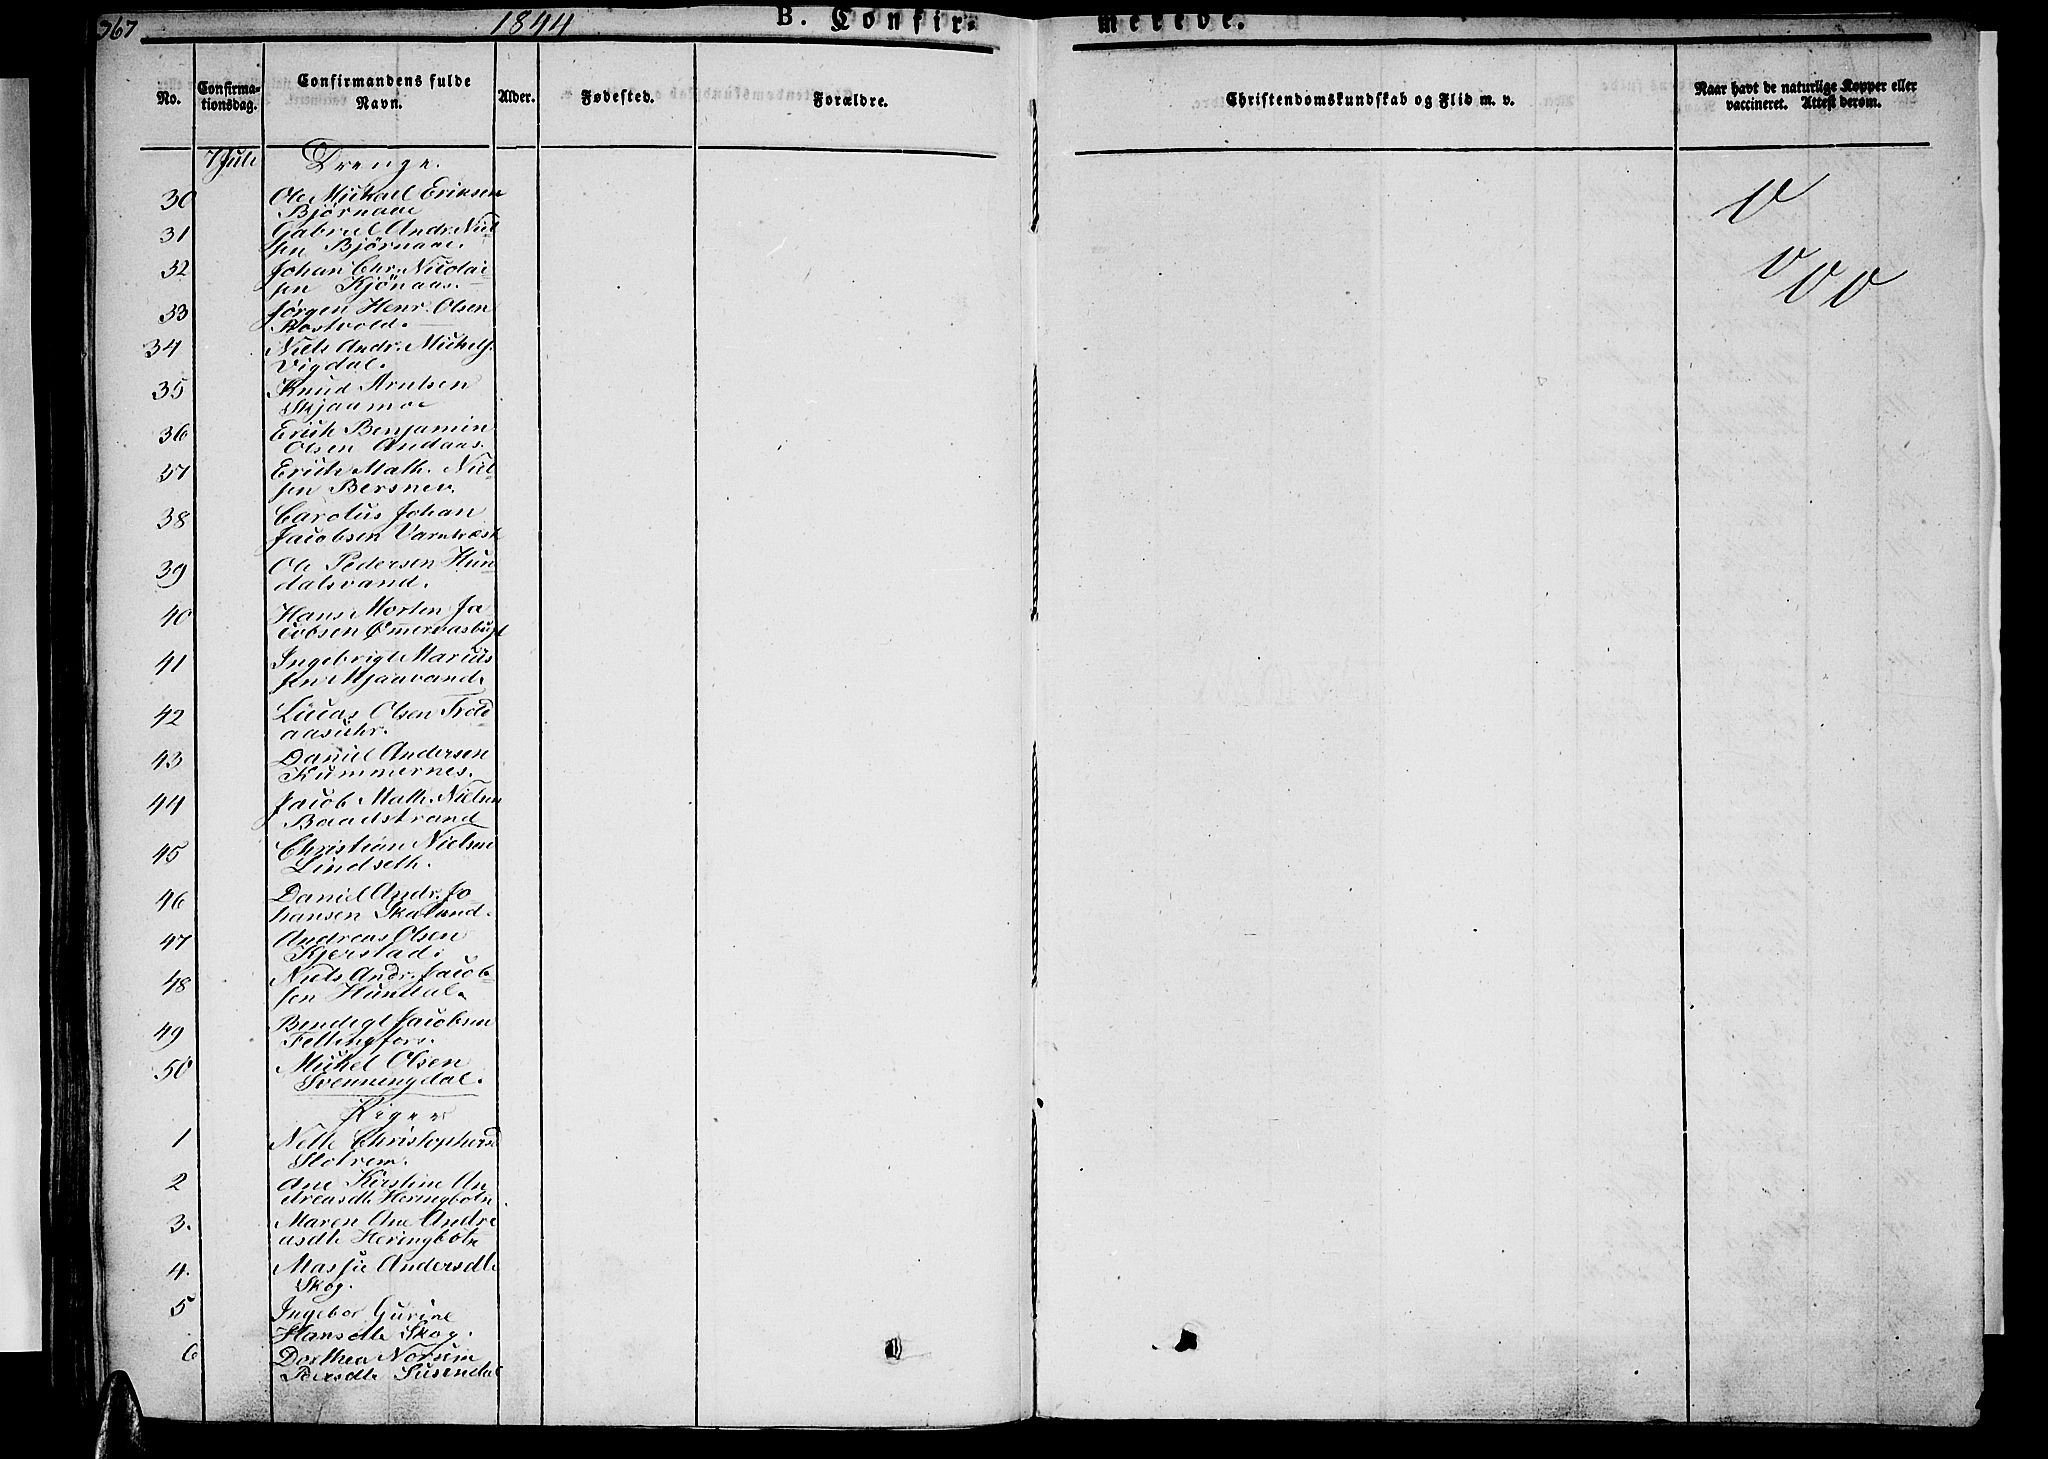 367
1844
B. Confir-
merede.
No.
Confirma-
tionsdag.
Confirmandens fulde
Navn.
Alder.
Fødested.
Forældre.
Christendomskundskab og Flid m. v.
Naar havt de naturlige Kopper eller
vaccineret. Attest derom.
7 Juli Drenge.
30 Ole Mickael Eriksen
Bjørnaae
31 Gabriel Andr. Niel
sen Bjørnaae.
32 Johan Chr. Nicolai-
sen Kjönaas.
33 Jørgen Henr. Olsen
Rostvold.
34 Niels Andr. Mickels.
Vigdal.
35 Knud Arntsen
Skjaamoe
36 Erich Benjamin
Olsen Andaas.
37 Erich Math. Niel-
sen Bersnev.
38 Carolus Johan
Jacobsen
39 Ole Pedersen Hun-
dalsvand.
40 Hans Morten Ja
cobsen
41 Ingebrigt Marius
sen Mjaavand.
42 Lucas Olsen Trold-
43 Daniel Andersen
Kummernes.
44 Jacob Math. Nielsen
Baadstrand
45 Christian Nielsen
Lindseth.
46 Daniel Andr. Jo-
hansen Skaland.
47 Andreas Olsen
Kjerstad.
48 Niels Andr. Jacob-
sen Hundal.
49 Bendigt Jacobsen
Fellingfors.
50 Mickel Olsen
Svenningdal.
Piger
1 Nelle Christophersd
Slotrem.
2 Ane Kirstine An
dreasdtr Heringbotn
3. Maren Ane Andre
asdtr Heringbotn
4. Massie Andersdtr
Skog.
5 Ingebor Gurine
Hansdtr Skog.
6 Dorthea Norum
Persdtr Susendal